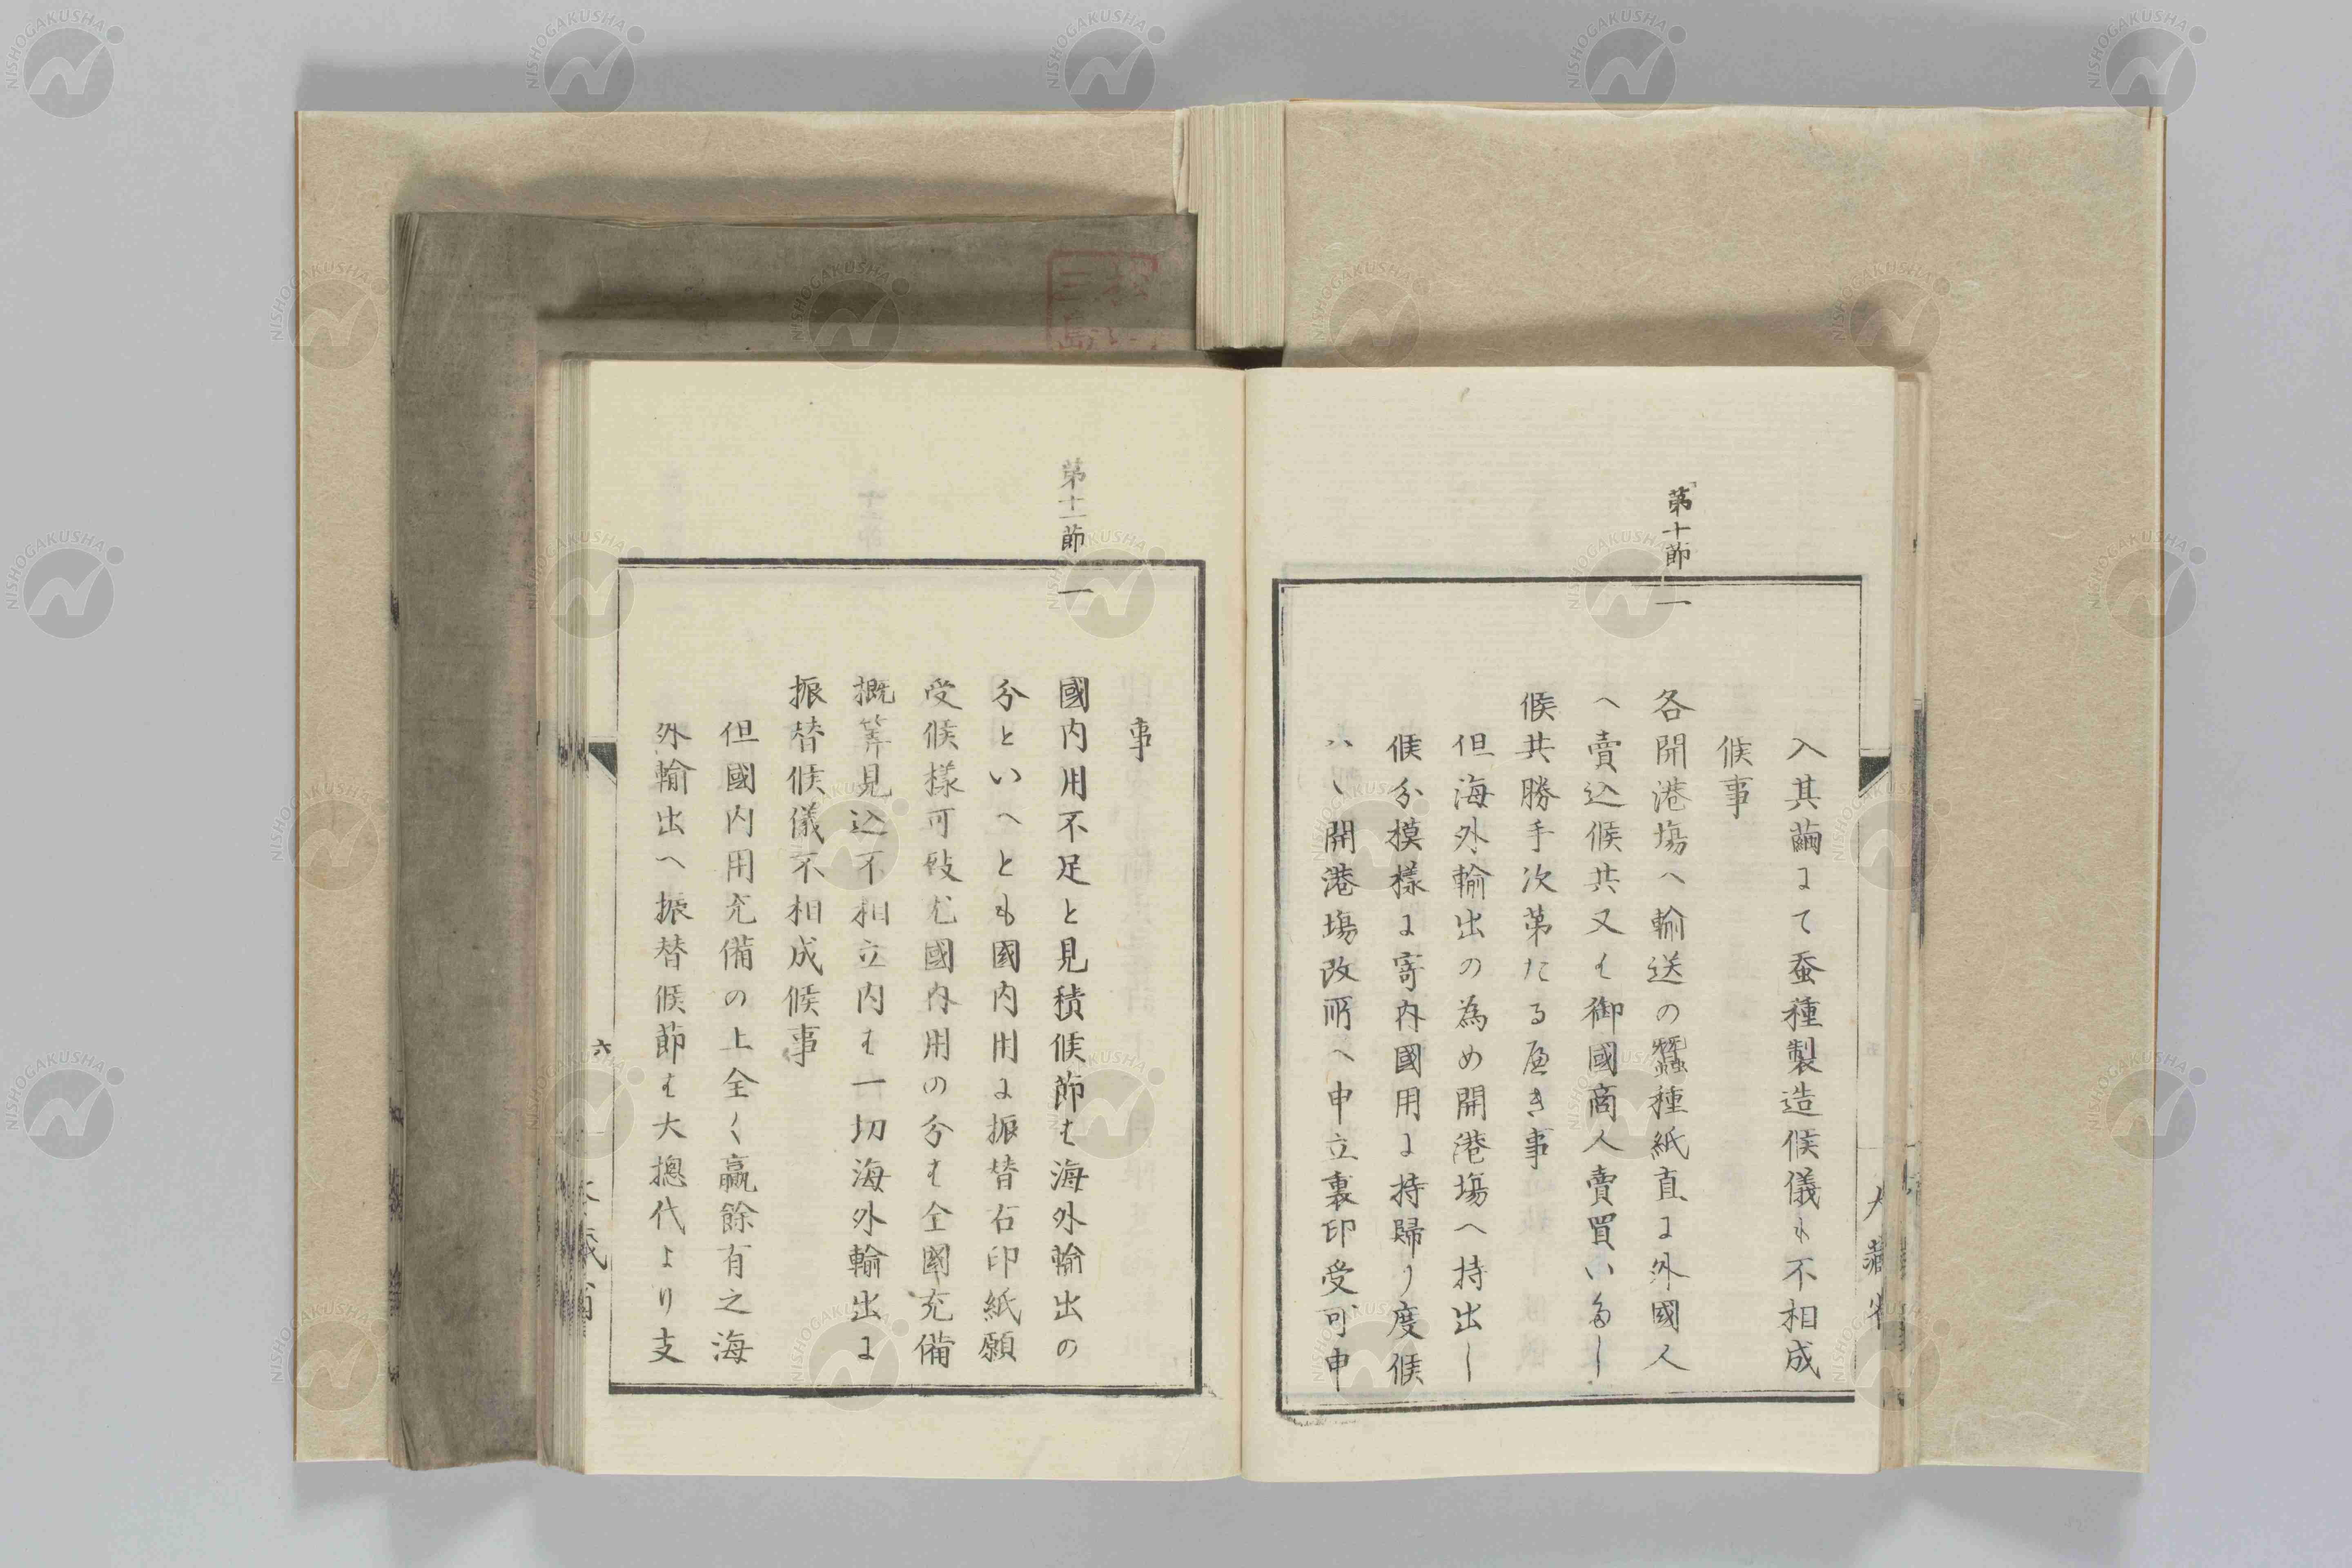 入其繭にて蚕種製造候儀も不相成
候事
第十節
一
各開港塲へ輸送の蠶種紙直に外國人
へ賣込候共又は御國商人賣買いたし
候共勝手次第たる屁き事
但海外輸出の為め開港塲へ持出し
候分模樣に寄内國用に持歸り度候
ハヽ開港塲改所へ申立裏印受可申
大藏省
事
第十一節
一
國内用不足と見積候節は海外輸出の
分といへとも國内用に振替右印紙願
受候樣可致尤國内用の分は全國充備
概算見込不相立内は一切海外輸出に
振替候儀不相成候事
但國内用充備の上全く贏餘有之海
外輸出へ振替候節は大摠代より支
六
NISHOGAKUSHA